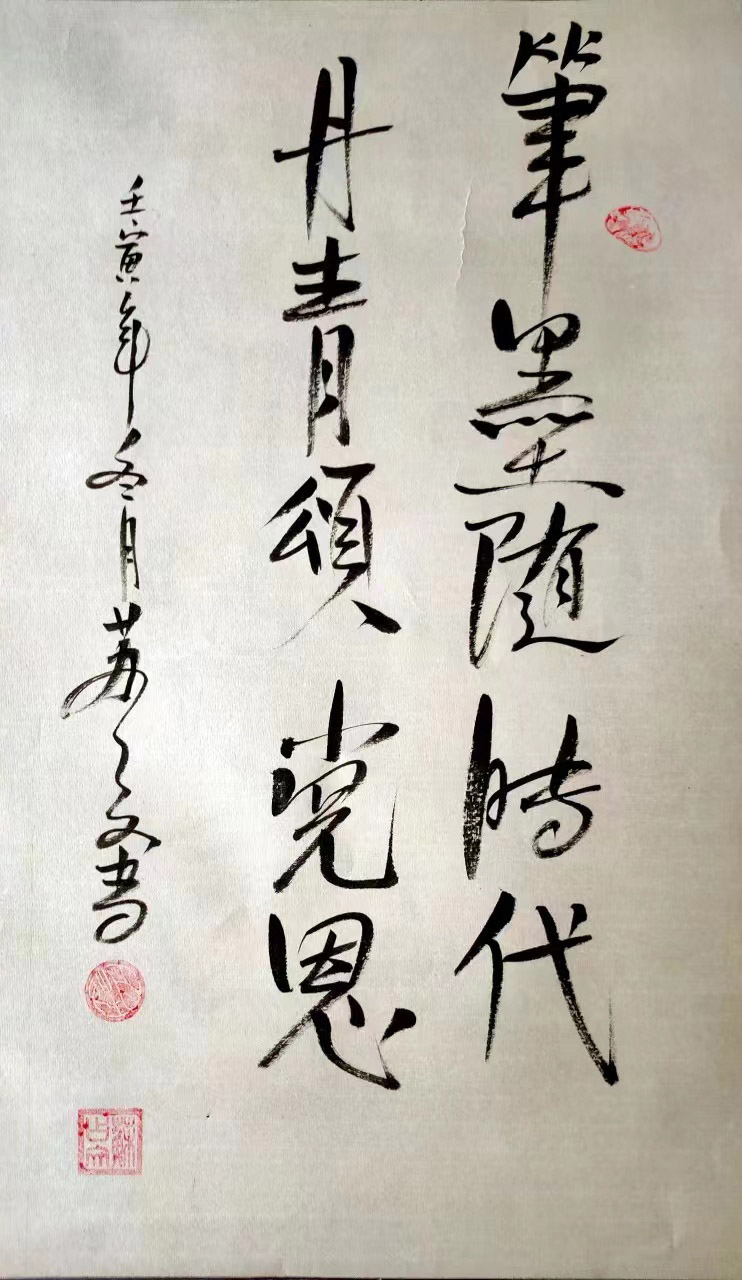 筆墨随時代
丹青頌党恩
壬寅年冬月苏之文書